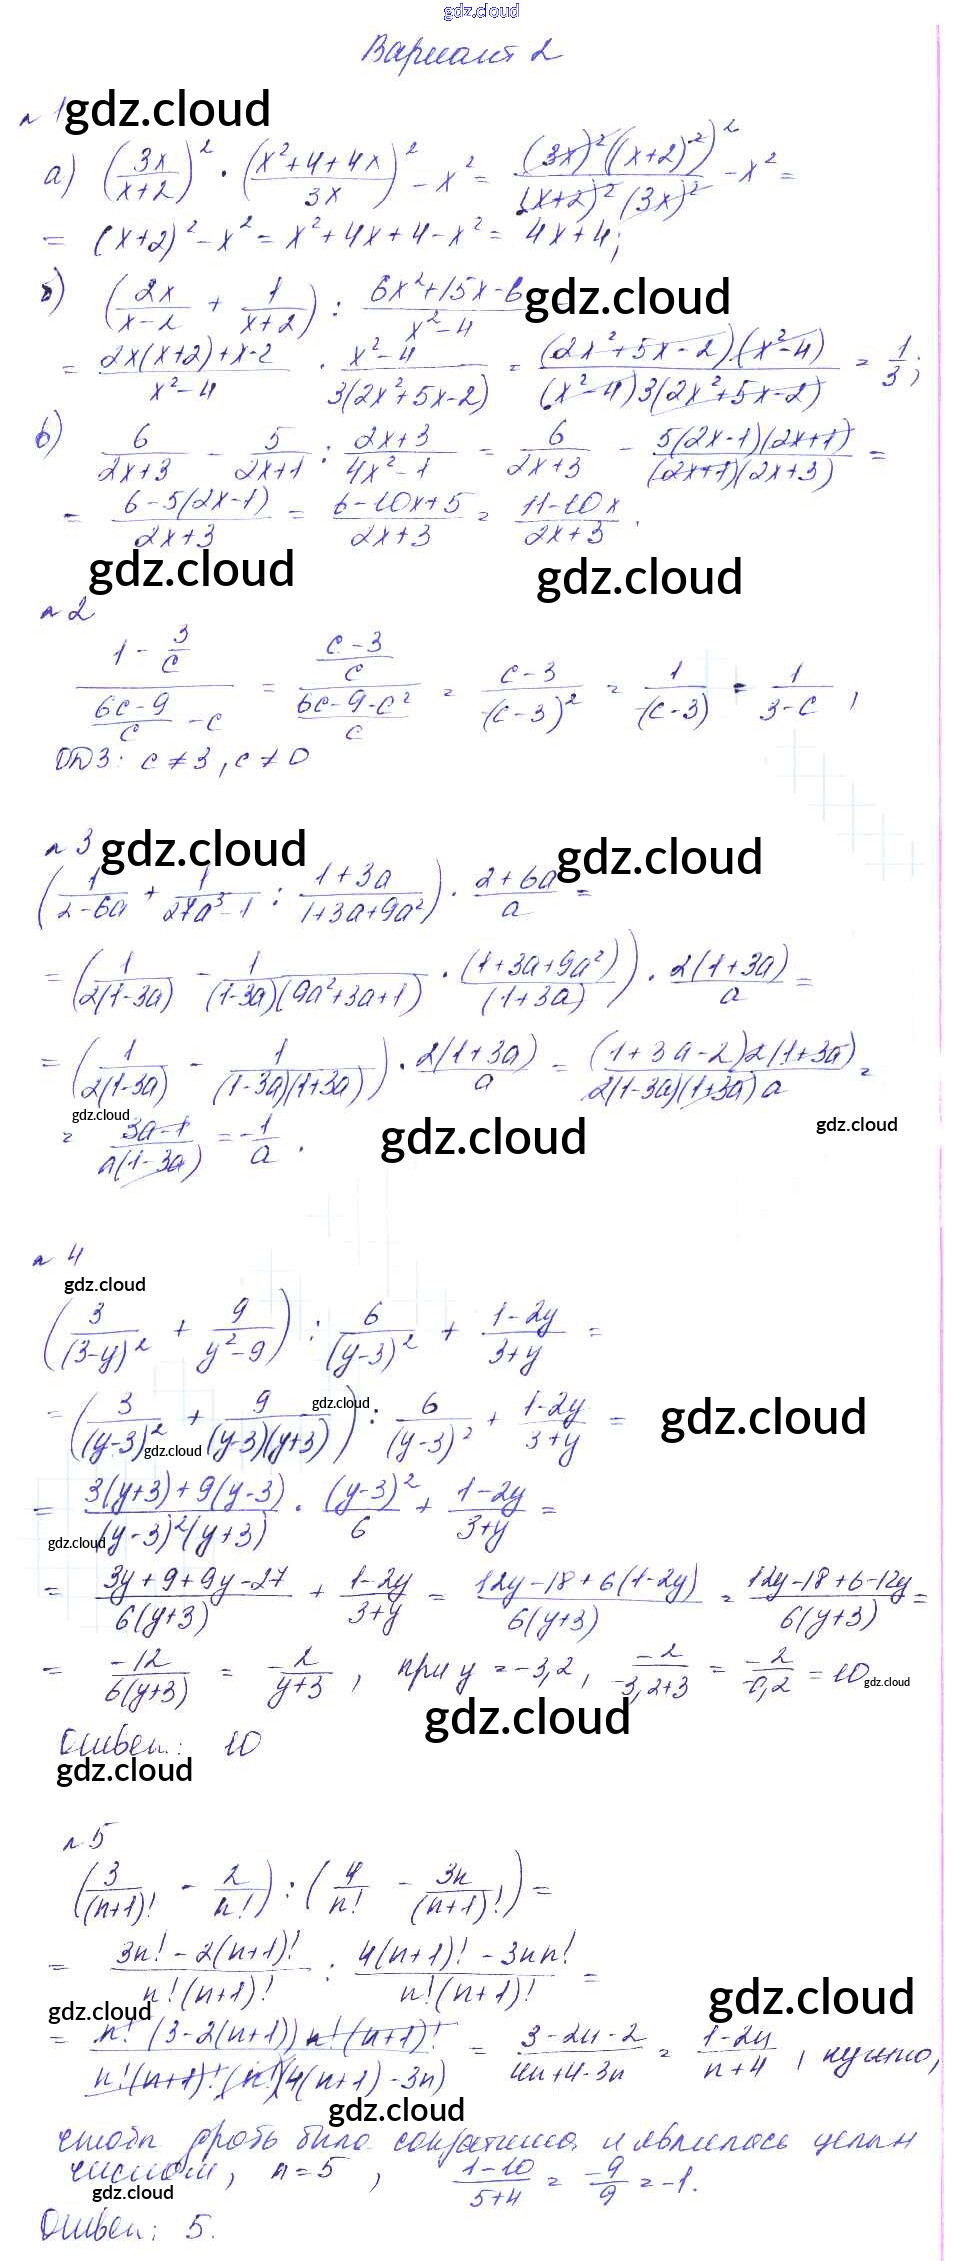 gdz.cloud
Вариант 2
№ 1 gdz.cloud
а) (3x/(x+2))² · ((x²+4+4x)/3x)² - x² = (3x)²((x+2)²)²/((x+2)²(3x)²) - x² =
= (x+2)² - x² = x²+4x+4-x² = 4x+4;
б) (2x/(x-2) + 1/(x+2)) : (6x²+15x-6)/(x²-4) gdz.cloud
= (2x(x+2)+x-2)/(x²-4) · (x²-4)/(3(2x²+5x-2)) = (2x²+5x-2)(x²-4)/((x²-4)3(2x²+5x-2)) = 1/3;
в) 6/(2x+3) - 5/(2x+1) : (2x+3)/(4x²-1) = 6/(2x+3) - 5(2x-1)(2x+1)/((2x+1)(2x+3)) =
= (6-5(2x-1))/(2x+3) = (6-10x+5)/(2x+3) = (11-10x)/(2x+3).
gdz.cloud gdz.cloud
№ 2
(1 - 3/c)/((6c-9)/c - c) = ((c-3)/c)/((6c-9-c²)/c) = (c-3)/(-(c-3)²) = 1/(-(c-3)) = 1/(3-c),
ОДЗ: c ≠ 3, c ≠ 0
№ 3 gdz.cloud gdz.cloud
(1/(2-6a) + 1/(27a³-1) : (1+3a)/(1+3a+9a²)) · (2+6a)/a =
= (1/(2(1-3a)) - 1/((1-3a)(9a²+3a+1)) · (1+3a+9a²)/(1+3a)) · 2(1+3a)/a =
= (1/(2(1-3a)) - 1/((1-3a)(1+3a))) · 2(1+3a)/a = (1+3a-2)2(1+3a)/(2(1-3a)(1+3a)a) =
gdz.cloud gdz.cloud gdz.cloud
= (3a-1)/(a(1-3a)) = -1/a.
№ 4
gdz.cloud
(3/(3-y)² + 9/(y²-9)) : 6/(y-3)² + (1-2y)/(3+y) =
gdz.cloud gdz.cloud
= (3/(y-3)² + 9/((y-3)(y+3))) : 6/(y-3)² + (1-2y)/(3+y) =
gdz.cloud
= (3(y+3)+9(y-3))/((y-3)²(y+3)) · (y-3)²/6 + (1-2y)/(3+y) =
gdz.cloud
= (3y+9+9y-27)/(6(y+3)) + (1-2y)/(3+y) = (12y-18+6(1-2y))/(6(y+3)) = (12y-18+6-12y)/(6(y+3)) =
= -12/(6(y+3)) = -2/(y+3), при y = -3,2, -2/(-3,2+3) = -2/(-0,2) = 10 gdz.cloud
gdz.cloud
Ответ: 10
gdz.cloud
№ 5
(3/(n+1)! - 2/n!) : (4/n! - 3n/(n+1)!) =
= (3n!-2(n+1)!)/(n!(n+1)!) : (4(n+1)!-3nn!)/(n!(n+1)!) =
gdz.cloud gdz.cloud
= n!(3-2(n+1))n!(n+1)!/(n!(n+1)!(n!)(4(n+1)-3n)) = (3-2n-2)/(4n+4-3n) = (1-2n)/(n+4), нужно,
gdz.cloud
чтобы дробь была сократима и являлась целым
числом, n=5, (1-10)/(5+4) = -9/9 = -1.
gdz.cloud
Ответ: 5.